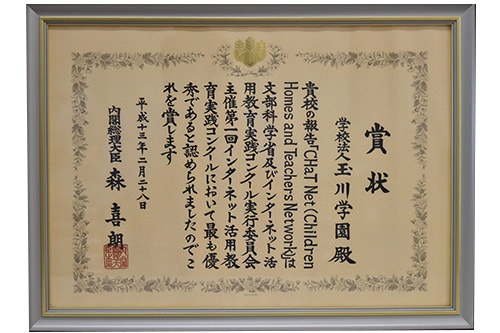 賞状
学校法人玉川学園殿
貴校の報告「CHaT Net(Children
Homes and Teachers Network)」は
文部科学省及びインターネット活
用教育実践コンクール実行委員会
主催第一回インターネット活用教
育実践コンクールにおいて最も優
秀であると認められましたのでこ
れを賞します
平成十三年二月二十八日
内閣総理大臣 森喜朗